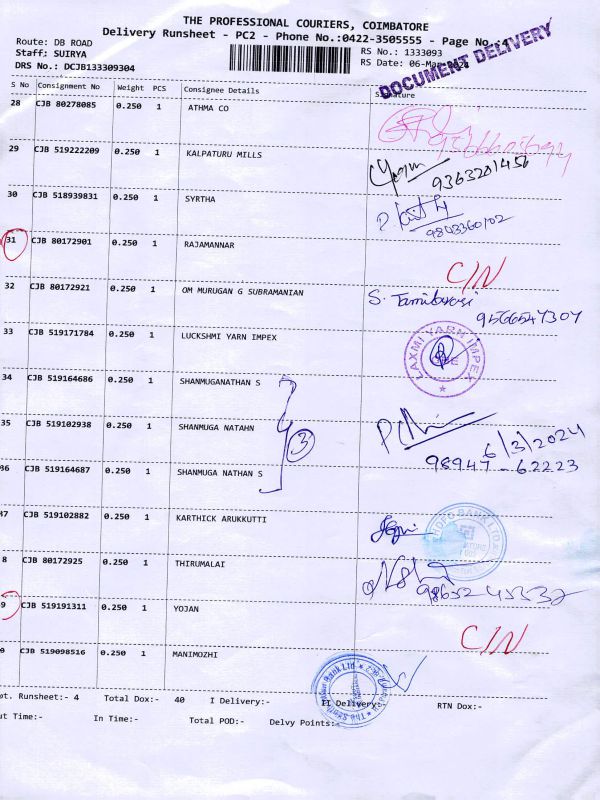 THE PROFESSIONAL COURIERS, COIMBATORE
Delivery Runsheet - PC2 - Phone No.:0422-3505555 - Page No.:4
Route: DB ROAD
Staff: SUIRYA
DRS No.: DCJB133309304
RS No.: 1333093
RS Date: 06-Mar-2024
DOCUMENT DELIVERY
S No Consignment No Weight PCS Consignee Details Signature
28 CJB 80278085 0.250 1 ATHMA CO
29 CJB 519222209 0.250 1 KALPATURU MILLS 9363201456
30 CJB 518939831 0.250 1 SYRTHA 9803360102
31 CJB 80172901 0.250 1 RAJAMANNAR C/N
32 CJB 80172921 0.250 1 OM MURUGAN G SUBRAMANIAN S. Tamilarasi
9566547307
33 CJB 519171784 0.250 1 LUCKSHMI YARN IMPEX LAXMI YARN IMPEX
34 CJB 519164686 0.250 1 SHANMUGANATHAN S
35 CJB 519102938 0.250 1 SHANMUGA NATAHN 3 6/3/2024
98947-62223
36 CJB 519164687 0.250 1 SHANMUGA NATHAN S
37 CJB 519102882 0.250 1 KARTHICK ARUKKUTTI HDFC BANK LTD
8 CJB 80172925 0.250 1 THIRUMALAI
9 CJB 519191311 0.250 1 YOJAN C/N
0 CJB 519098516 0.250 1 MANIMOZHI
pt. Runsheet:- 4 Total Dox:- 40 I Delivery:- II Delivery:- RTN Dox:-
ut Time:- In Time:- Total POD:- Delvy Points:-